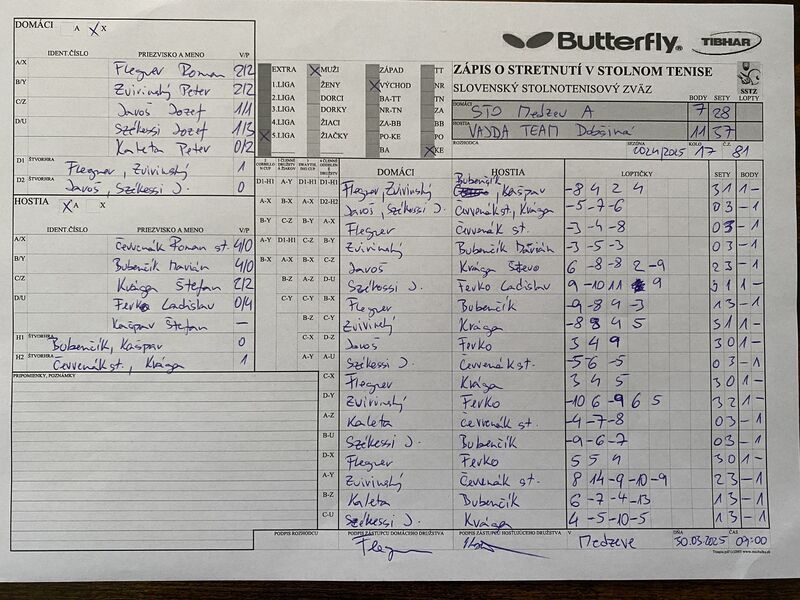 DOMÁCI A X X
Butterfly TIBHAR
IDENT.ČÍSLO PRIEZVISKO A MENO V/P
A/X Flegner Roman 2/2
B/Y Zvirinský Peter 2/2
C/Z Javoš Jozef 1/1
D/U Székessi Jozef 1/3
Kaleta Peter 0/2
D1 ŠTVORHRA Flegner, Zvirinský 1
D2 ŠTVORHRA Javoš, Székessi J. 0
EXTRA MUŽI ZÁPAD TT
1.LIGA ŽENY VÝCHOD NR
2.LIGA DORCI BA-TT TN
3.LIGA DORKY NR-TN ZA
4.LIGA ŽIACI ZA-BB BB
5.LIGA ŽIAČKY PO-KE PO
BA KE
ZÁPIS O STRETNUTÍ V STOLNOM TENISE
SLOVENSKÝ STOLNOTENISOVÝ ZVÄZ
SSTZ
BODY SETY LOPTY
DOMÁCI STO Medzev A 7 28
HOSTIA VAJDA TEAM Dobšiná 11 37
ROZHODCA SEZÓNA 2024/2025 KOLO 17 Č. 81
HOSTIA A X
IDENT.ČÍSLO PRIEZVISKO A MENO V/P
A/X Červenák Roman st. 4/0
B/Y Bubenčík Marián 4/0
C/Z Krága Štefan 2/2
D/U Ferko Ladislav 0/4
Kašpar Štefan —
H1 ŠTVORHRA Bubenčík, Kašpar 0
H2 ŠTVORHRA Červenák st., Krága 1
PRIPOMIENKY, POZNÁMKY
DOMÁCI HOSTIA LOPTIČKY SETY BODY
D1-H1 A-Y D1-H1 D1-H1 Flegner, Zvirinský Bubenčík, Kašpar -8 4 2 4 3 1 1 -
A-X B-X A-X D2-H2 Javoš, Székessi J. Červenák st., Krága -5 -7 -6 0 3 - 1
B-Y C-Z B-Y A-X Flegner Červenák st. -3 -4 -8 0 3 - 1
A-Y D1-H1 C-Z B-Y Zvirinský Bubenčík Marián -3 -5 -3 0 3 - 1
B-X A-X B-X C-Z Javoš Krága Števo 6 -8 -8 2 -9 2 3 - 1
B-Z A-Z D-U Székessi J. Ferko Ladislav 9 -10 11 9 3 1 1 -
C-Y C-Y B-X Flegner Bubenčík -9 -8 4 -3 1 3 - 1
B-Z C-Y Zvirinský Krága -8 8 4 5 3 1 1 -
C-X D-Z Javoš Ferko 3 4 9 3 0 1 -
A-Y A-U Székessi J. Červenák st. -5 -6 -5 0 3 - 1
C-X Flegner Krága 3 4 5 3 0 1 -
D-Y Zvirinský Ferko -10 6 -9 6 5 3 2 1 -
A-Z Kaleta Červenák st. -4 -7 -8 0 3 - 1
B-U Székessi J. Bubenčík -9 -6 -7 0 3 - 1
D-X Flegner Ferko 5 5 4 3 0 1 -
A-Y Zvirinský Červenák st. 8 14 -9 -10 -9 2 3 - 1
B-Z Kaleta Bubenčík 6 -7 -4 -13 1 3 - 1
C-U Székessi J. Krága 4 -5 -10 -5 1 3 - 1
PODPIS ROZHODCU PODPIS ZÁSTUPCU DOMÁCEHO DRUŽSTVA PODPIS ZÁSTUPCU HOSŤUJÚCEHO DRUŽSTVA V Medzeve DŇA 30.03.2025 O 09:00